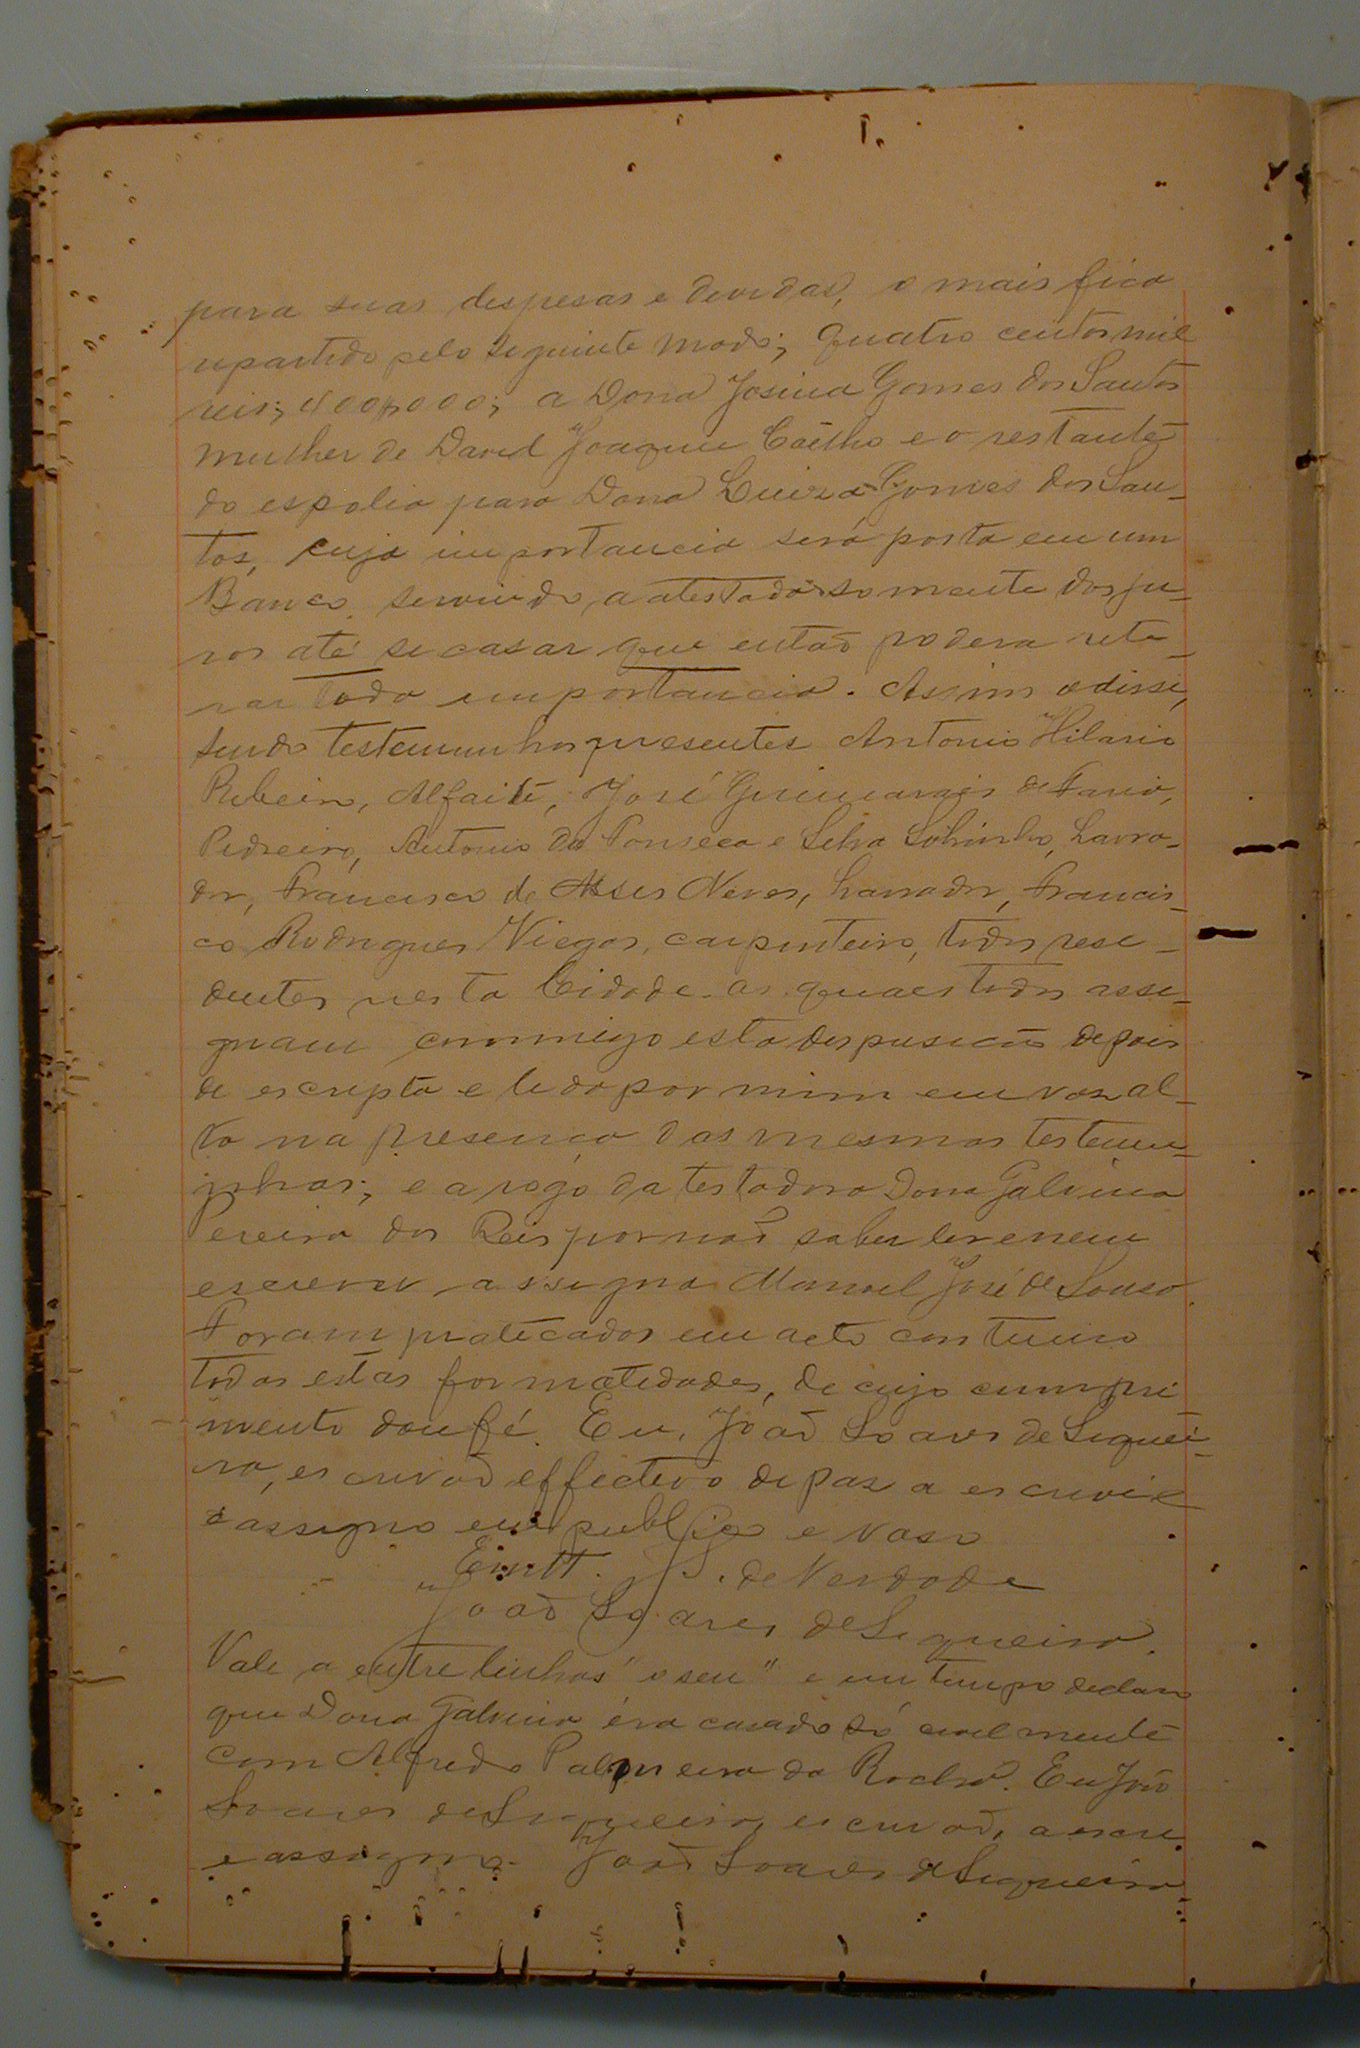 para suas despesas e devidas, o mais fica
repartido pelo seguinte modo; quatro centos mil
reis; 400$000; a Dona Josina Gomes dos Santos
mulher de David Joaquim Coêlho e o restante
do espolio para Dona Luiza Gomes dos San-
tos, cuja importancia será posta em um
Banco servindo, a atestada somente dos ju-
ros até se casar que então podera reti-
rar toda importancia. Assim o disse,
sendo testemunhas presentes Antonio Hilario
Ribeiro, Alfaite, José Guimarães de Faria,
Pedreiro, Antonio da Fonseca e Silva Sobrinho, Lavra-
dor, Francisco de Assis Neves, Lavrador, Francis-
co Rodrigues Viegas, carpinteiro, todos resi-
dentes nesta Cidade. as quaes todos assi-
gnam commigo esta desposicão depois
de escripta e lida por mim em voz al-
ta na presença das mesmas testemu-
nhas; e a rogo da testadora Dona Galvina
Pereira dos Reis por não saber ler e nem
escrever assigna Manoel José de Sousa.
Foram praticados em acto continuo
todas estas formatidades, de cujo cumpri
mento dou fé. Eu, João Soares de Siquei-
ra, escrivão effectivo de paz a escrevi e
e assigno em publico e raso
Em tt. de Verdade
João Soares de Siqueira.
Vale a entre linhas "o seu" e em tempo declaro
que Dona Galvina éra casada só civilmente
com Alfredo Palmeira da Rocha. Eu João
Soares de Siqueira, escrivão, a escrevi
e assigno. João Soares de Siqueira.